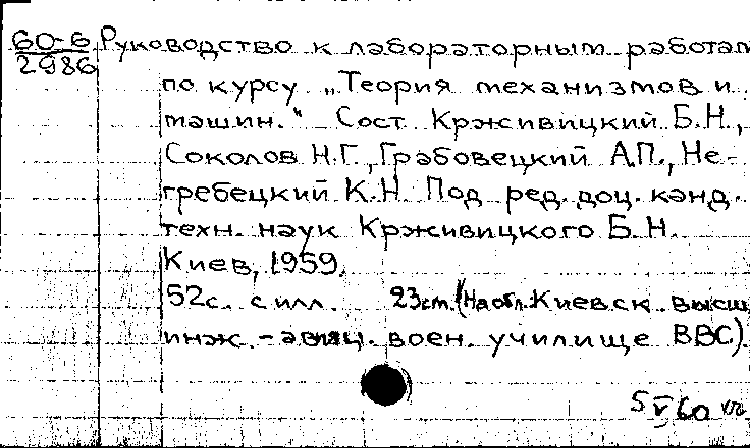 60-6 Руководство к лабораторным работам
2986
по курсу „Теория механизмов и
машин.“ Сост. Крживицкий Б.Н.,
Соколов Н.Г., Грабовецкий А.П., Не-
гребецкий К.Н. Под ред. доц. канд.
техн. наук Крживицкого Б.Н.
Киев, 1959.
52с. с илл. 23см. (На обл. Киевск. высш
инж.-авиац. воен. училище ВВС.)
5 V 60